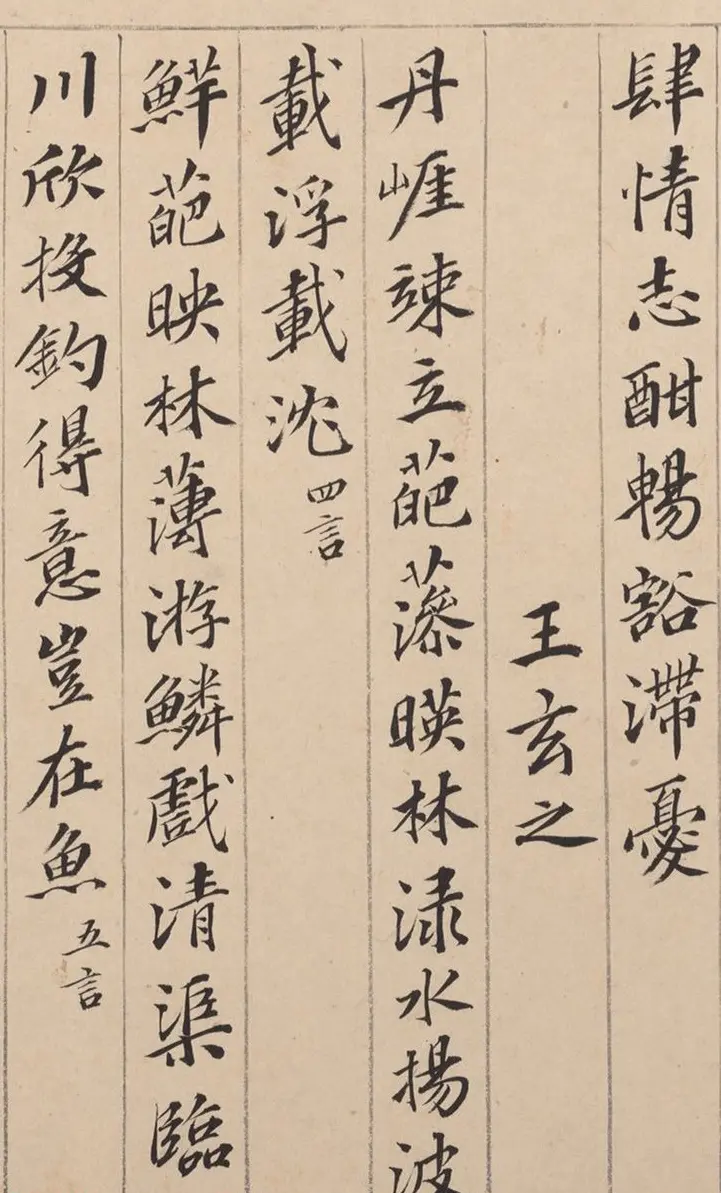 肆情志酣暢豁滯憂
王玄之
丹崖竦立葩藻暎林渌水揚波
載浮載沈四言
鮮葩映林薄游鱗戲清渠臨
川欣投釣得意豈在魚五言